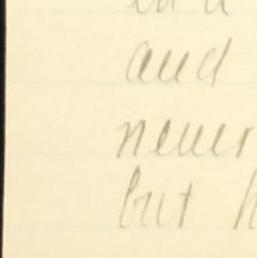 and
never
but